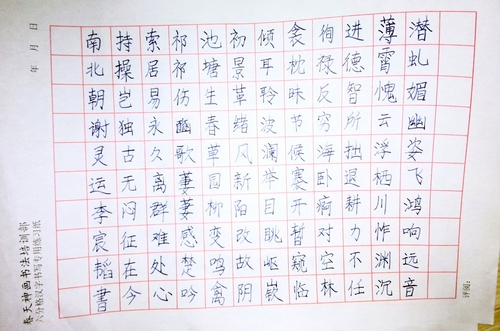 潜虬媚幽姿飞鸿响远音
薄霄愧云浮栖川怍渊沉
进德智所拙退耕力不任
徇禄反穷海卧痾对空林
衾枕昧节候褰开暂窥临
倾耳聆波澜举目眺岖嵚
初景革绪风新阳改故阴
池塘生春草园柳变鸣禽
祁祁伤豳歌萋萋感楚吟
索居易永久离群难处心
持操岂独古无闷征在今
南北朝谢灵运李宸韬書
天神画书法培训部
六分格汉字书写专用练习纸
年 月 日
评阅：